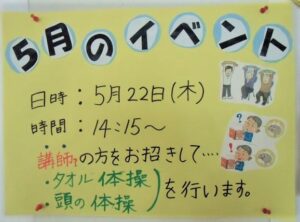 5月のイベント
日時：5月22日(木)
時間：14:15〜
講師の方をお招きして…
・タオル体操
・頭の体操
を行います。